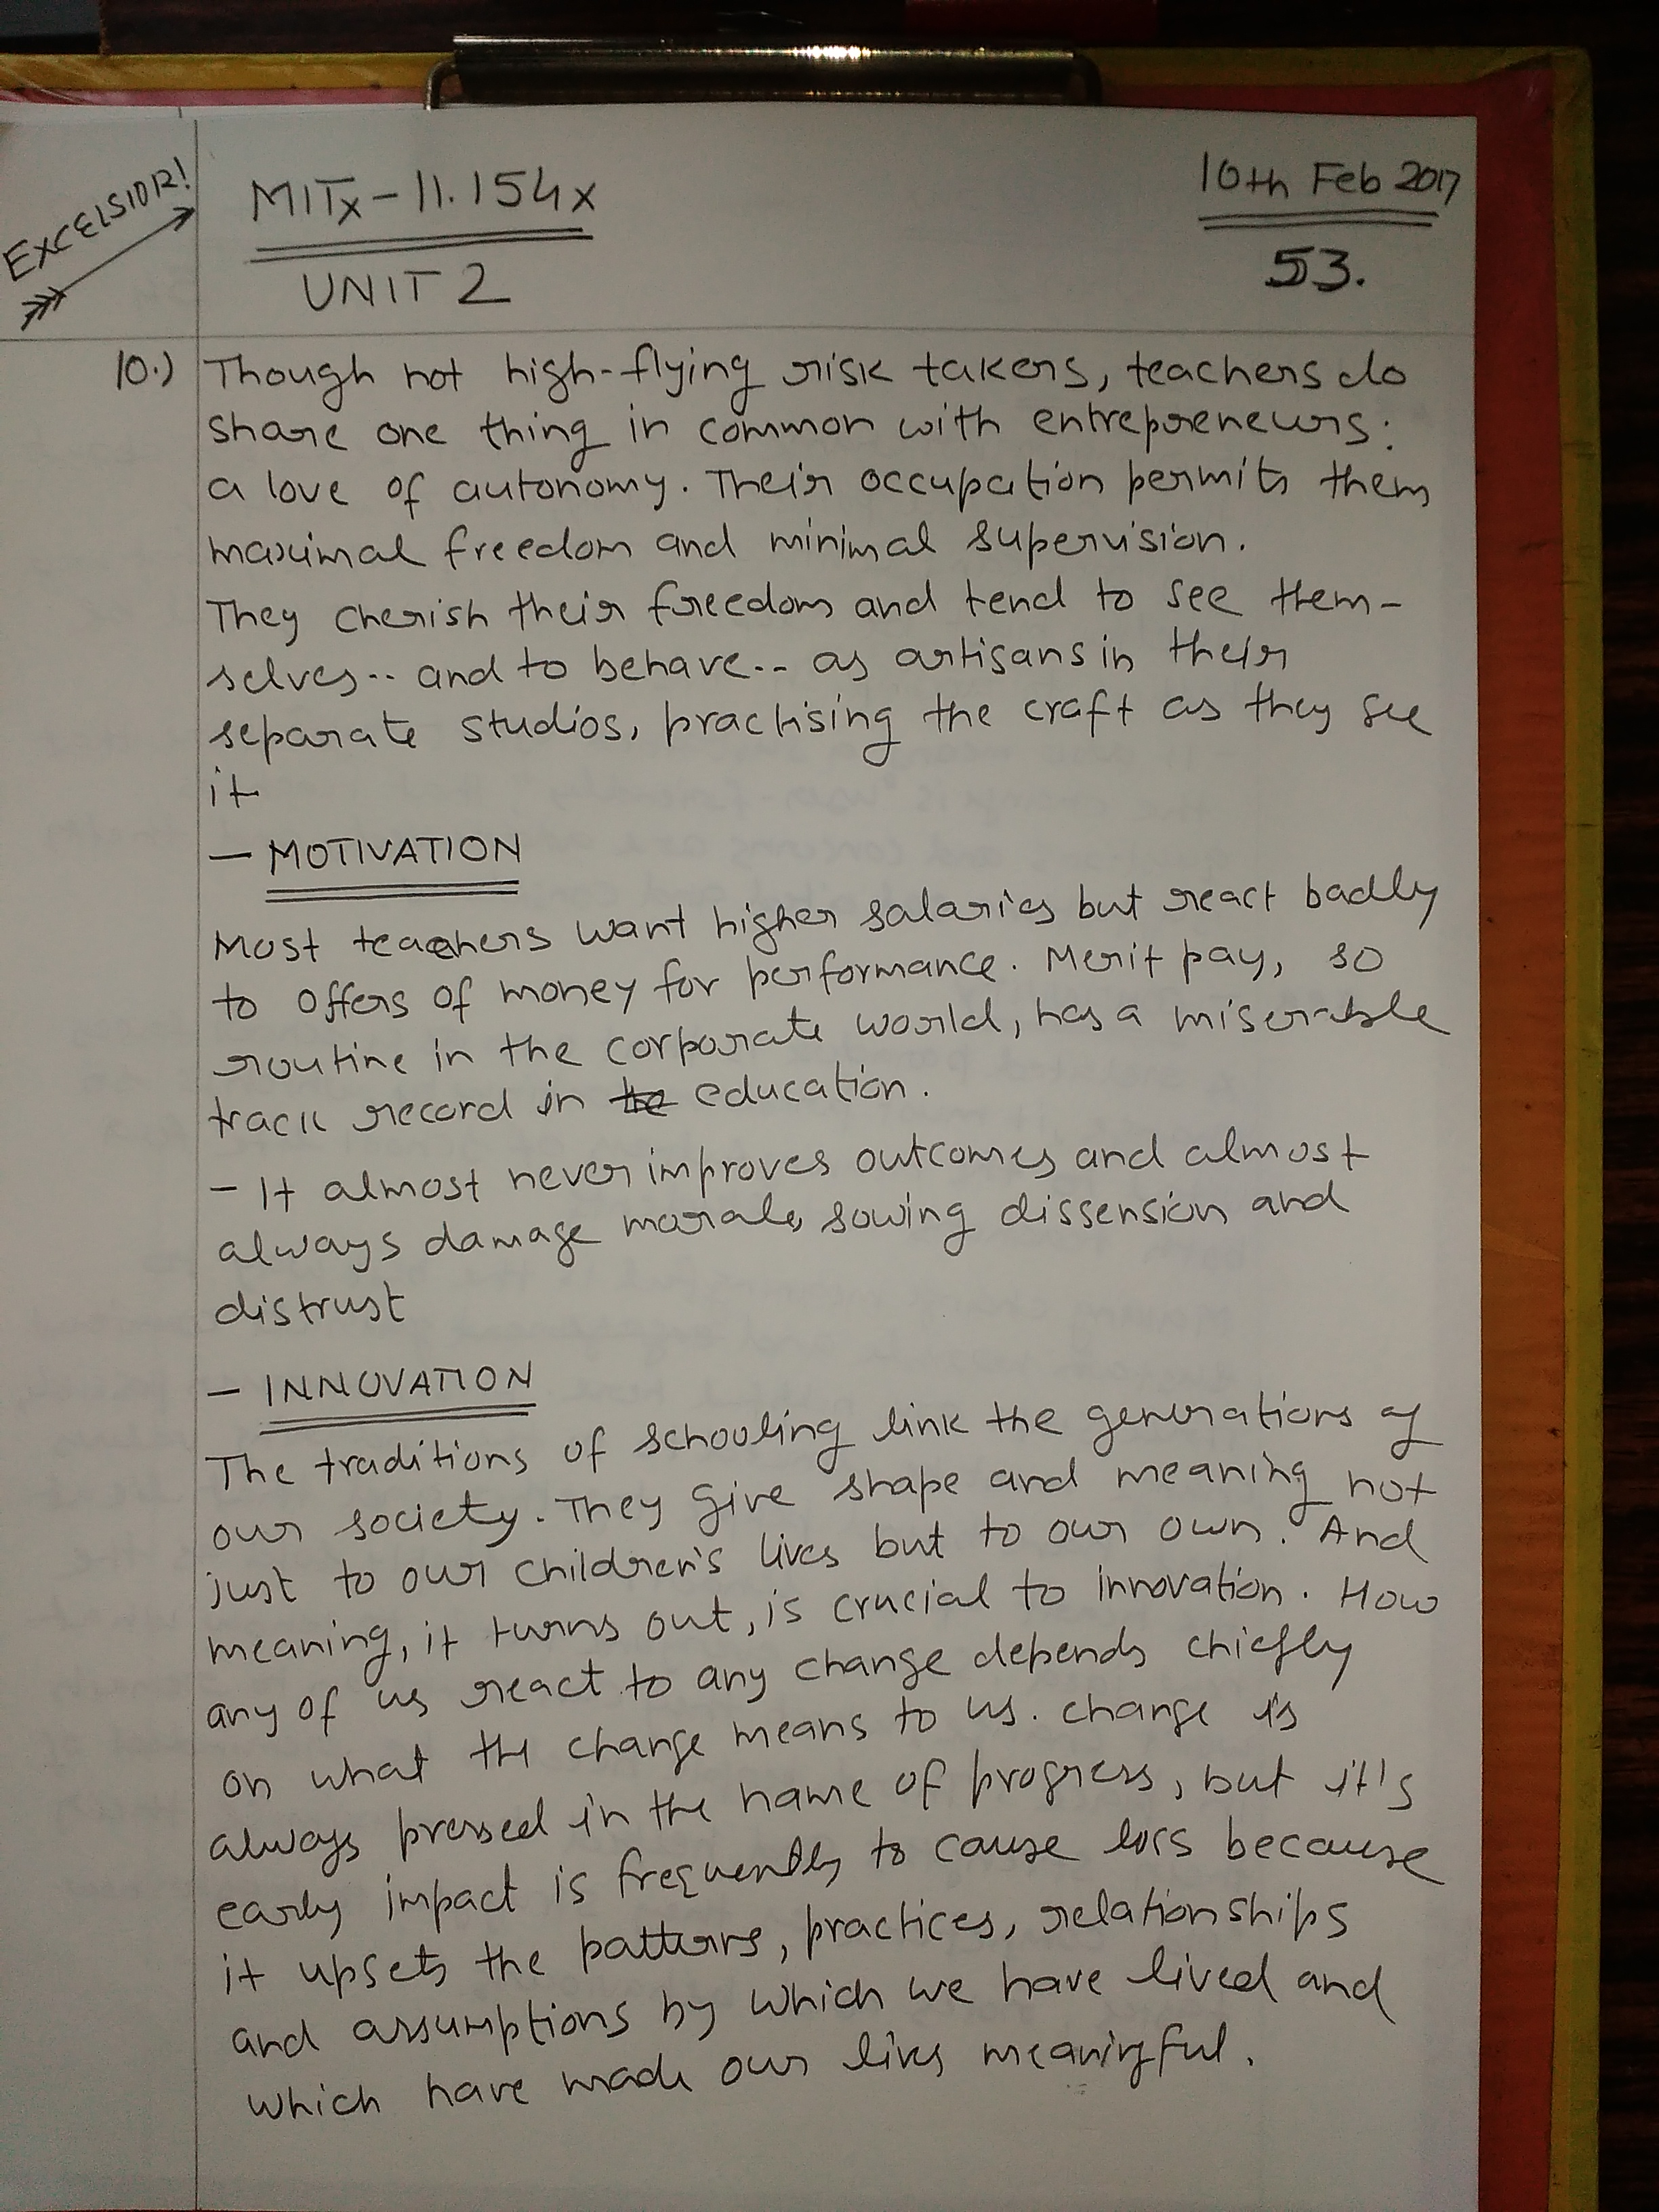 EXCELSIOR!
MITx - 11.154x
10th Feb 2017
UNIT 2
53.
10.) Though not high-flying risk takers, teachers do
share one thing in common with entrepreneurs:
a love of autonomy. Their occupation permits them
maximal freedom and minimal supervision.
They cherish their freedom and tend to see them-
selves.. and to behave.. as artisans in their
separate studios, practising the craft as they see
it
- MOTIVATION
Most teachers want higher salaries but react badly
to offers of money for performance. Merit pay, so
routine in the corporate world, has a miserable
track record in the education.
- It almost never improves outcomes and almost
always damage morale, sowing dissension and
distrust
- INNOVATION
The traditions of schooling link the generations of
our society. They give shape and meaning not
just to our children's lives but to our own. And
meaning, it turns out, is crucial to innovation. How
any of us react to any change depends chiefly
on what the change means to us. change is
always pressed in the name of progress, but it's
early impact is frequently to cause loss because
it upsets the patterns, practices, relationships
and assumptions by which we have lived and
which have made our lives meaningful.